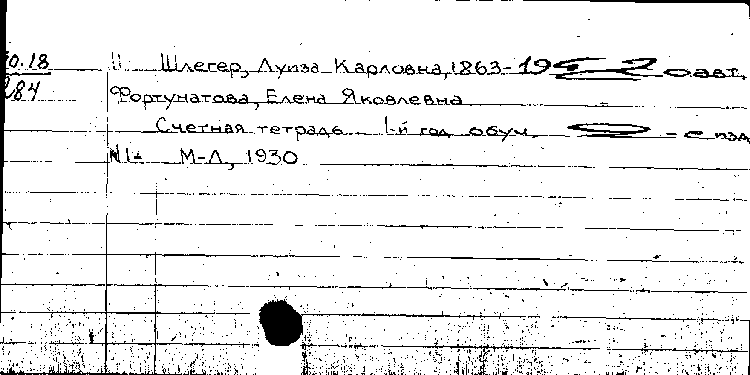 0.18 Шлегер, Луиза Карловна, 1863- соавт.
284 Фортунатова, Елена Яковлевна
Счетная тетрадь 1-й год обуч. - с изд
N1- М-Л, 1930